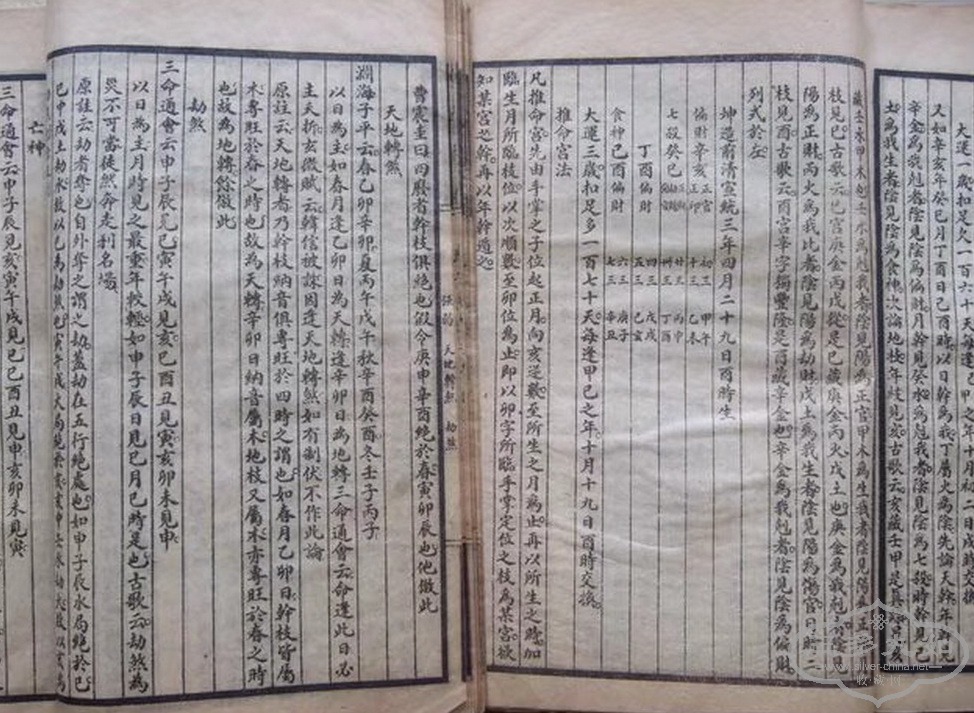 又如辛亥年癸巳月丁酉日己酉時以日幹為我丁屬火為陰先論天幹年
辛金為我尅者陰見陰為偏財月幹見癸水為尅我者陰見陰為七殺時幹見
土為我生者陰見陰為食神次論地枝年枝見亥古歌云亥藏壬甲是真
為尅我者陰見陽為正官甲木為生我者陰見陽為正
枝見巳古歌云巳宮庚金丙戊從是巳藏庚金丙火戊土也庚金為我尅者陰
陽為正財丙火為我比者陰見陽為劫財戊土為我生者陰見陽為傷官日時二
枝見酉古歌云酉宮辛字獨豐隆是酉藏辛金也辛金為我尅者陰見陰為偏財
列式於左
坤造前清宣統三年四月二十九日酉時生
偏財辛亥 正官 正印
七殺癸巳
丁酉偏財
食神己酉偏財
初三 甲午
十三 乙未
廿三 丙申
卅三 丁酉
四三 戊戌
五三 己亥
六三 庚子
七三 辛丑
大運三歲扣足多一百七十天每逢甲己之年十月十九日酉時交換
推命宮法
凡推命宮先由手掌之子位起正月向亥逆數至所生之月為止再以所生之時加
臨生月所臨枝位以次順數至卯位為止即以卯字所臨手掌定位之枝為某宮欲
知某宮之幹再以年幹遁之
天地轉煞 劫煞
曹震圭曰四廢者幹枝俱絕也假令庚申辛酉絕於春寅卯辰也他倣此
天地轉煞
淵海子平云春乙卯辛卯夏丙午戊午秋辛酉癸酉冬壬子丙子
以日為主如春月逢乙卯日為天轉逢辛卯日為地轉三命通會云命逢此日必
主夭折玄微賦云韓信被誅因逢天地轉煞如有制伏不作此論
原註云天地轉者乃幹枝納音俱專旺於四時之謂也如春月乙卯日幹枝皆屬
木專旺於春之時也故為天轉辛卯日納音屬木地枝又屬木亦專旺於春之時
也故為地轉餘倣此
劫煞
三命通會云申子辰見巳寅午戌見亥巳酉丑見寅亥卯未見申
以日為主月時見之最重年較輕如申子辰日見巳月巳時是也古歌云劫煞為
災不可當徒然奔走利名場
原註云劫者奪也自外奪之謂之劫蓋劫在五行絕處也如申子辰水局絕於巳
亡神
三命通會云申子辰見亥寅午戌見巳巳酉丑見申亥卯未見寅
www.silver-china.net
收藏